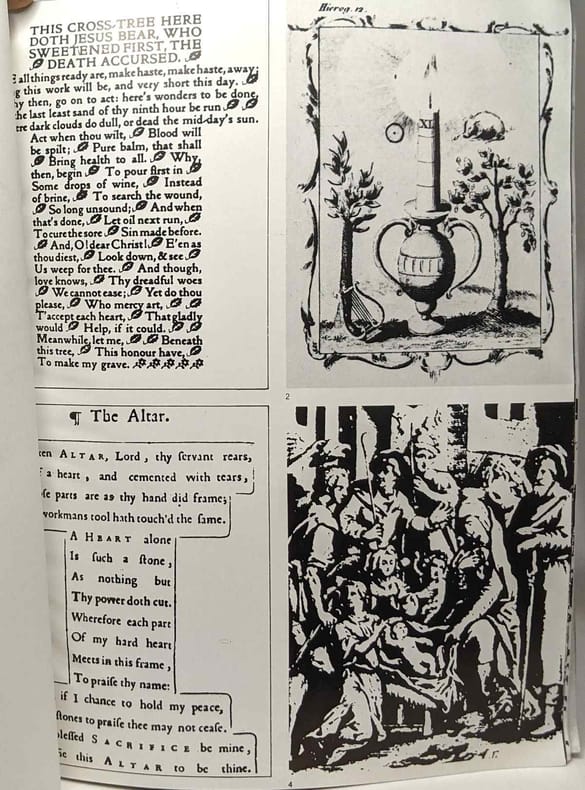 THIS CROSS-TREE HERE
DOTH JESUS BEAR, WHO
SWEETENED FIRST, THE
DEATH ACCURSED.
all things ready are, make haste, make haste, away;
this work will be, and very short this day.
then, go on to act: here's wonders to be done,
the last least sand of thy ninth hour be run
dark clouds do dull, or dead the mid-day's sun.
Act when thou wilt, Blood will
be spilt; Pure balm, that shall
Bring health to all. Why,
then, begin To pour first in
Some drops of wine, Instead
of brine, To search the wound,
So long unsound; And when
that's done, Let oil next run,
To cure the sore Sin made before.
And, O! dear Christ! E'en as
thou diest, Look down, & see
Us weep for thee. And though,
love knows, Thy dreadful woes
We cannot ease; Yet do thou
please, Who mercy art,
T'accept each heart, That gladly
would Help, if it could.
Meanwhile, let me, Beneath
this tree, This honour have,
To make my grave.
Hierog. 12.
XII
2
¶ The Altar.
ALTAR, Lord, thy ſervant rears,
a heart, and cemented with tears,
parts are as thy hand did frame;
workmans tool hath touch'd the ſame.
A HEART alone
Is ſuch a ſtone,
As nothing but
Thy power doth cut.
Wherefore each part
Of my hard heart
Meets in this frame,
To praiſe thy name:
if I chance to hold my peace,
ſtones to praiſe thee may not ceaſe.
bleſſed SACRIFICE be mine,
this ALTAR to be thine.
4